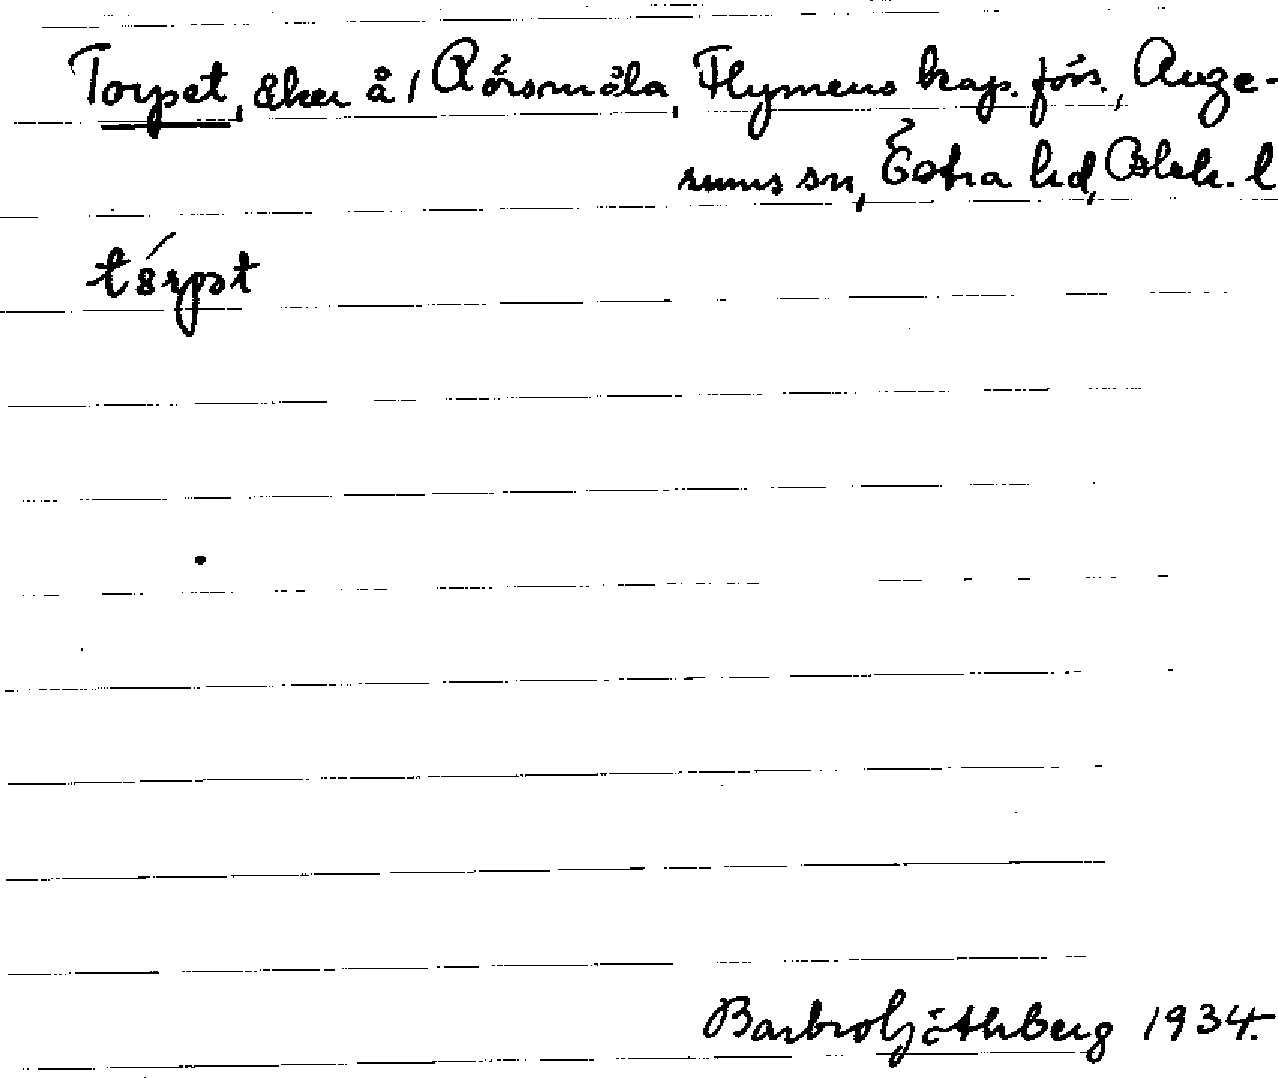 Torpet, åker å 1 Rörsmåla, Flymens kap. förs., Auge-
rums sn, Östra hd, Blek. l
Barbro Göthberg 1934.